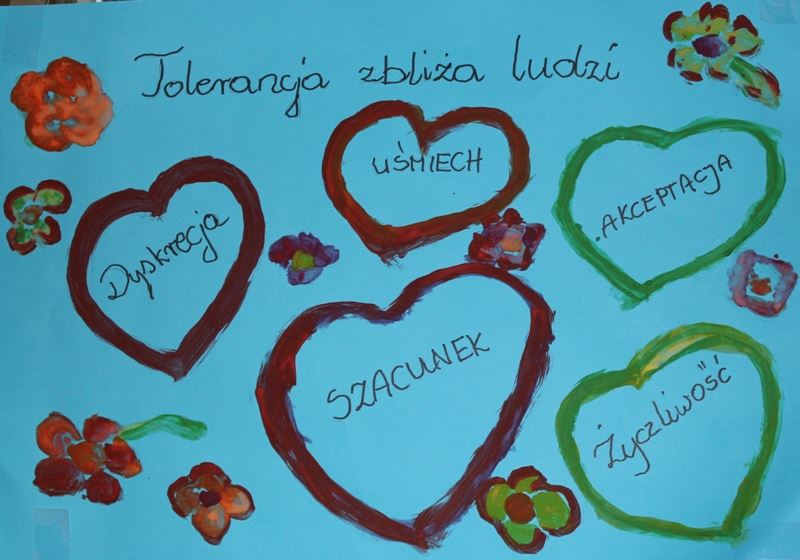 Tolerancja zbliża ludzi
UŚMIECH
AKCEPTACJA
Dyskrecja
SZACUNEK
Życzliwość